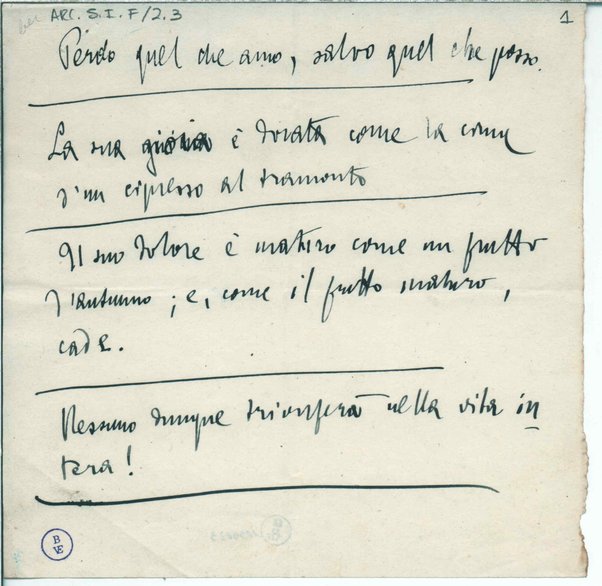 ARC. S. I. F/2.3
1
Perdo quel che amo, salvo quel che posso.
La sua gioia è dorata come la cima
d'un cipresso al tramonto
Il suo dolore è maturo come un frutto
d'autunno; e, come il frutto maturo,
cade.
Nessuno dunque trionferà nella vita in
tera!
B
VE